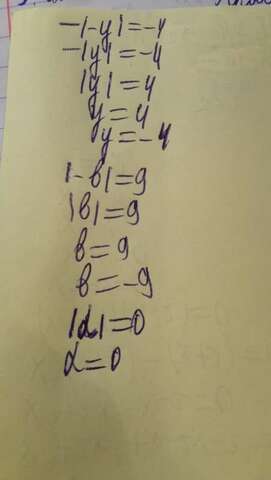 -|-y|=-4
-|y|=-4
|y|=4
y=4
y=-4
|-в|=9
|в|=9
в=9
в=-9
|α|=0
α=0